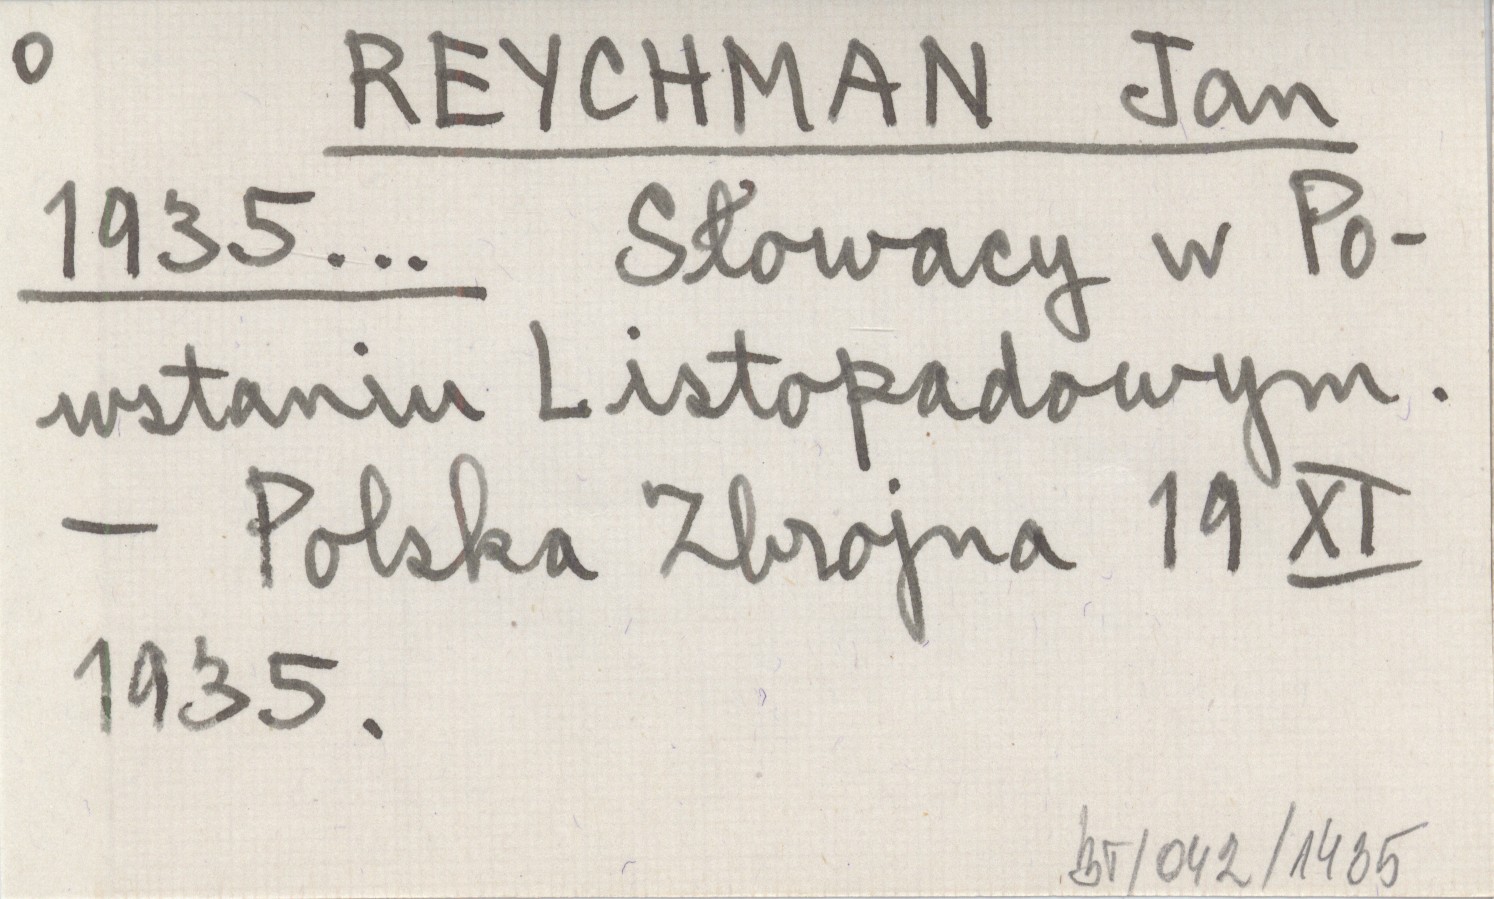 o REYCHMAN Jan
1935... Słowacy w Po-
wstaniu Listopadowym.
— Polska Zbrojna 19 XI
1935.
BT/042/1435